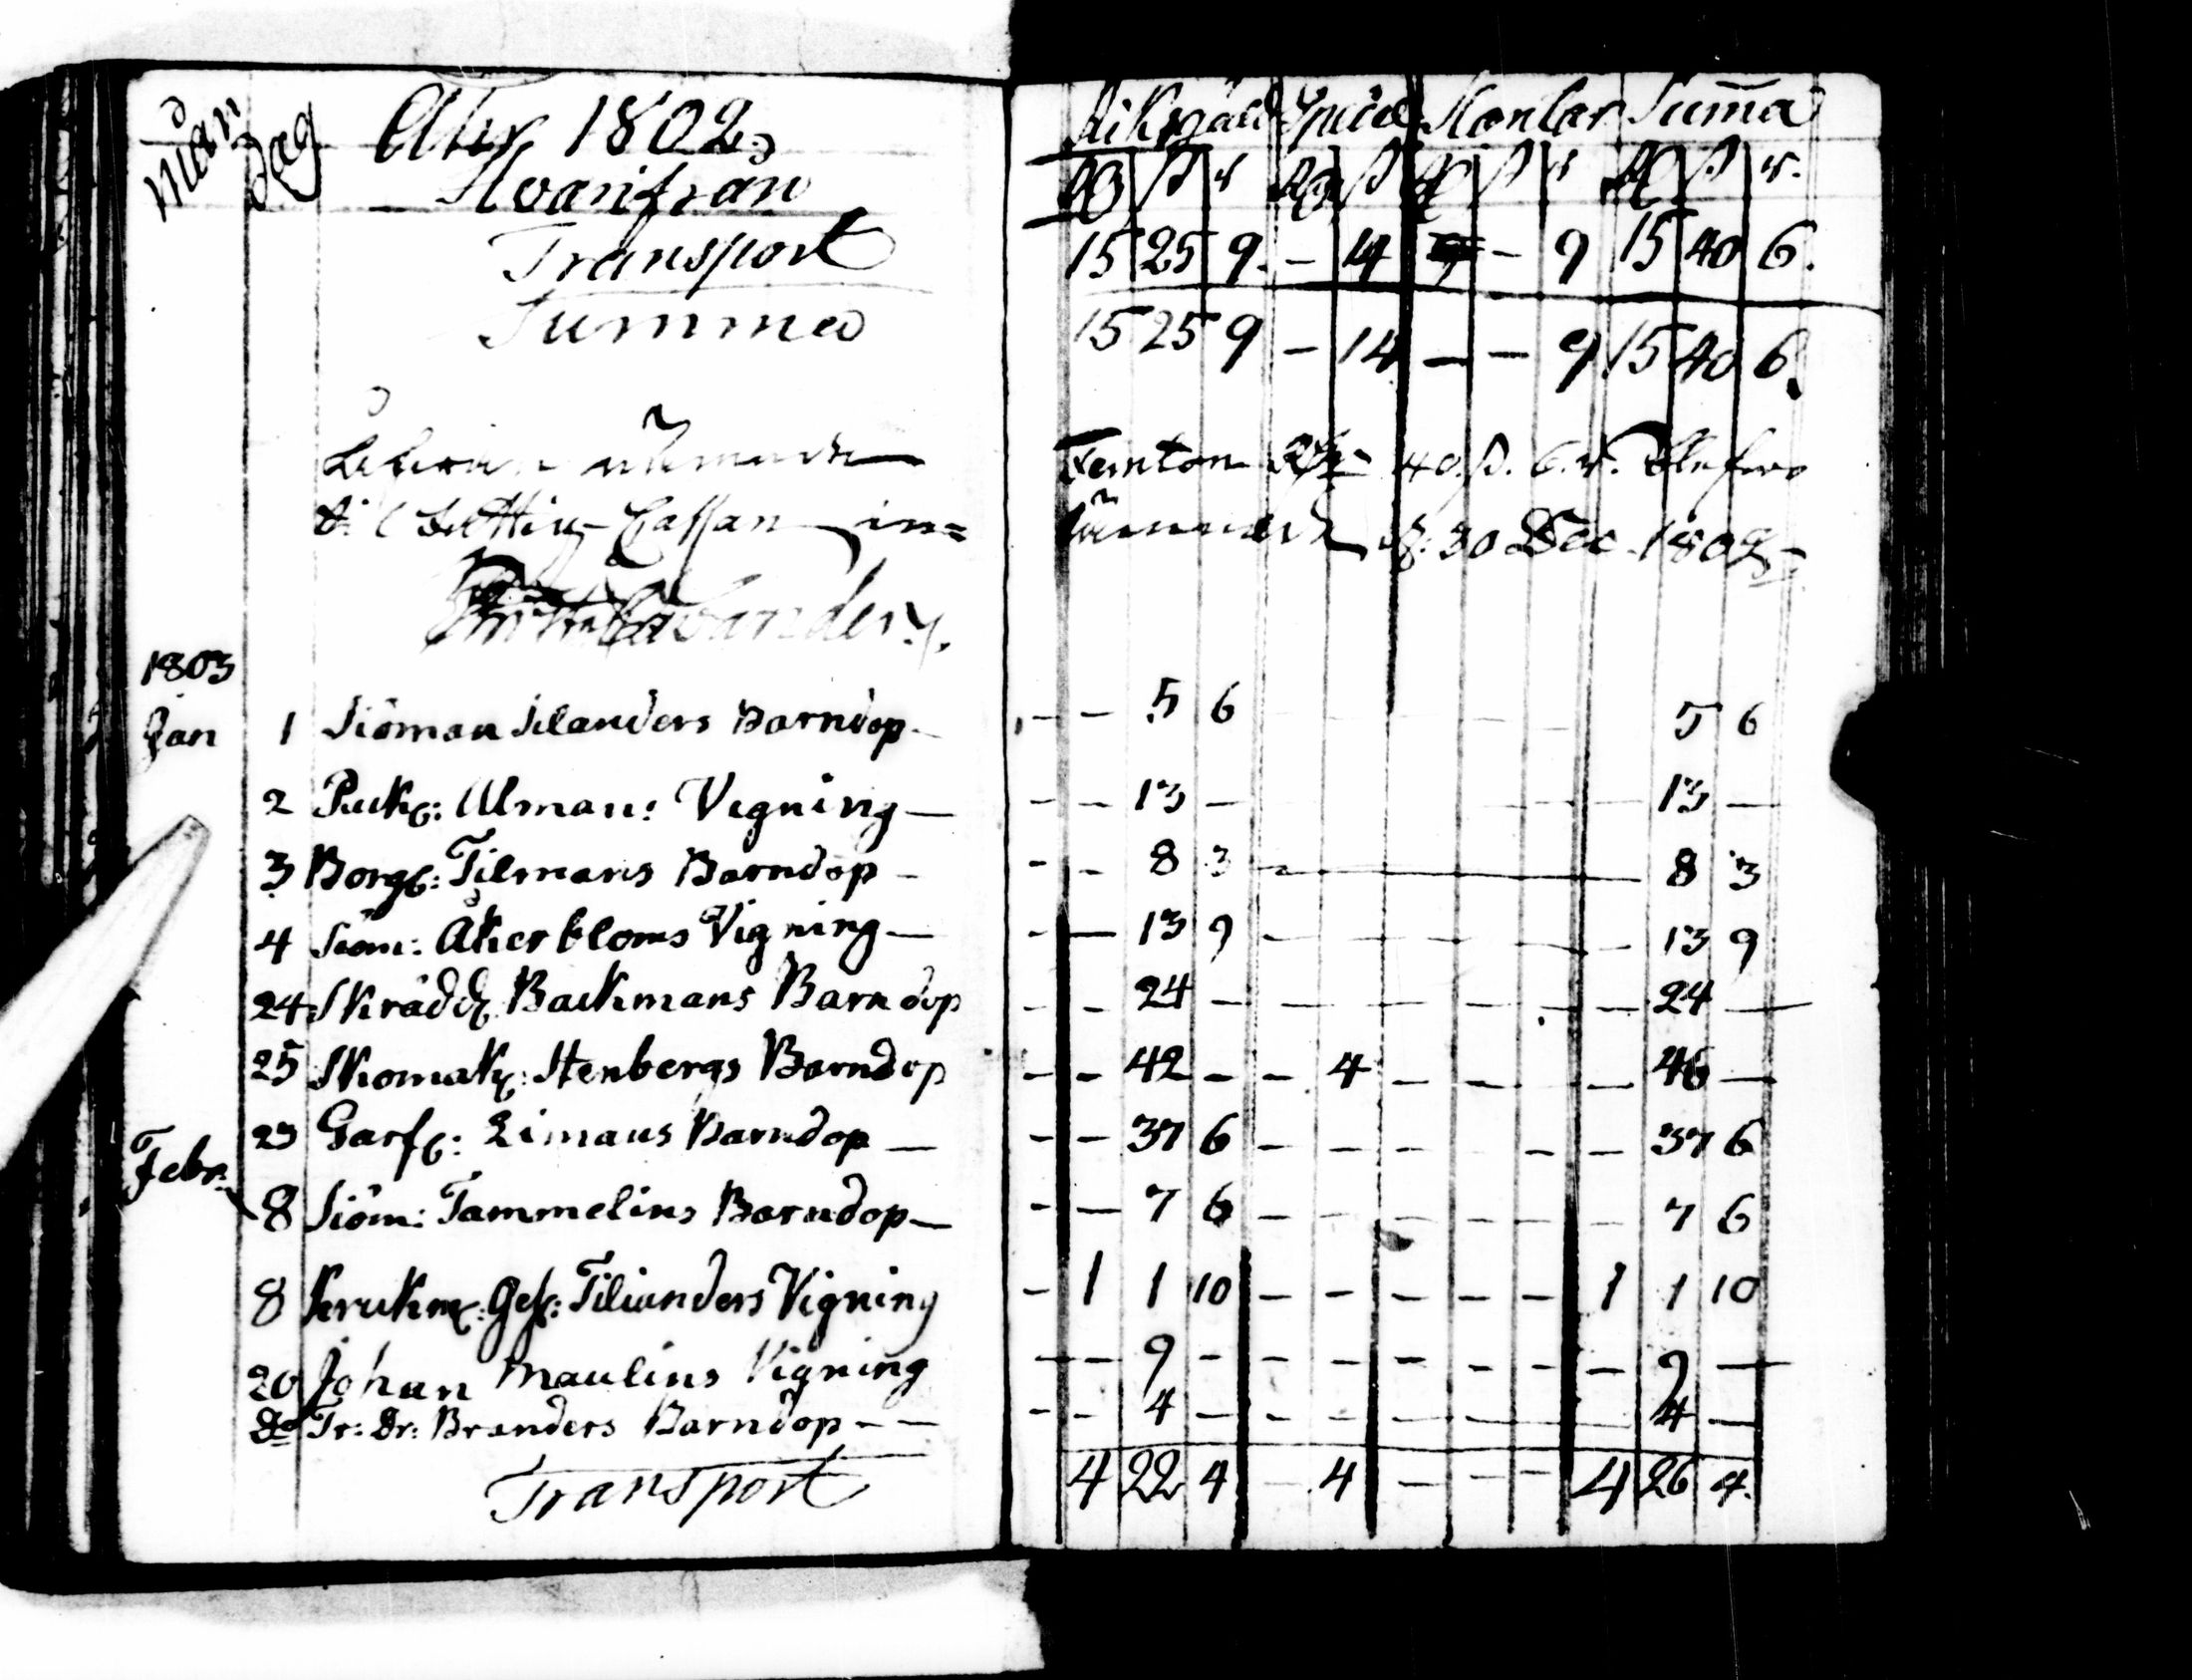 Månd Dag Åhr 1802 Riksgäld Speciel Slantar Suma
Hvarifrån Rd ß r Rd ß Rd ß r Rd ß r.
Transport 15 25 9. – 14 – 9 15 40 6.
Summa 15 25 9 – 14 – – 9 15 40 6.
Femton Rd 40 ß. 6 r.
til Fattig-Cassan in= d. 30 Dec. 1802
1803
Jan 1 Siöman Selanders Barndop – – – 5 6 5 6
2 Ruckc: Ulman: Vigning – – – 13 – 13 –
3 Borgc: Tilmans Barndop – – – 8 3 8 3
4 Siöm: Åkerbloms Vigning – – 13 9 – 13 9
24 Skrädd: Backmans Barndop – – 24 – – – – – – – 24 –
25 Skomak: Stenbergs Barndop – – 42 – – 4 – – 46 –
29 Garfc: Limans Barndop – – – 37 6 – – – – – 37 6
Febr: 8 Siöm: Tammelins Barndop – – – 7 6 – – – – – – 7 6
8 Krukm: Ges: Tilianders Vigning – 1 1 10 – – – – – 1 1 10
20 Johan Maulins Vigning – – 9 – – – – – – – 9 –
Do Tr: Dr: Branders Barndop – – – – 4 – – – – – 4 –
Transport 4 22 4 – 4 – – – 4 26 4.